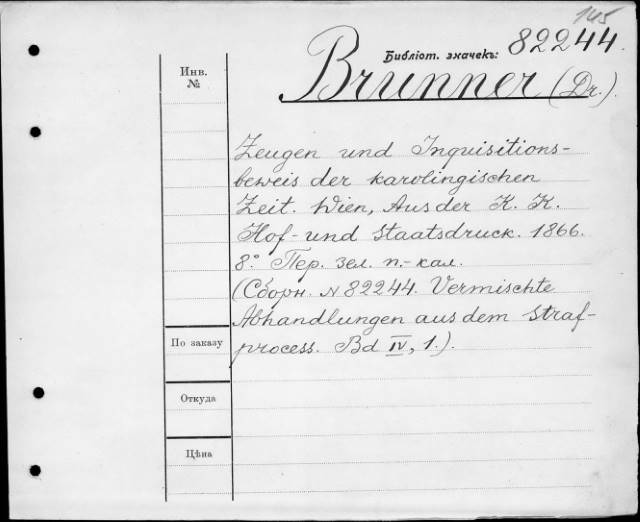 145
Библіот. значекъ: 82244.
Инв.
№
Brunner (Dr.).
Zeugen und Inquisitions-
beweis der karolingischen
Zeit. Wien, Aus der K. K.
Hof- und Staatsdruck. 1866.
8° Пер. зел. п.-кал.
(Сборн. № 82244. Vermischte
Abhandlungen aus dem Straf-
process. Bd IV, 1.).
По заказу
Откуда
Цѣна